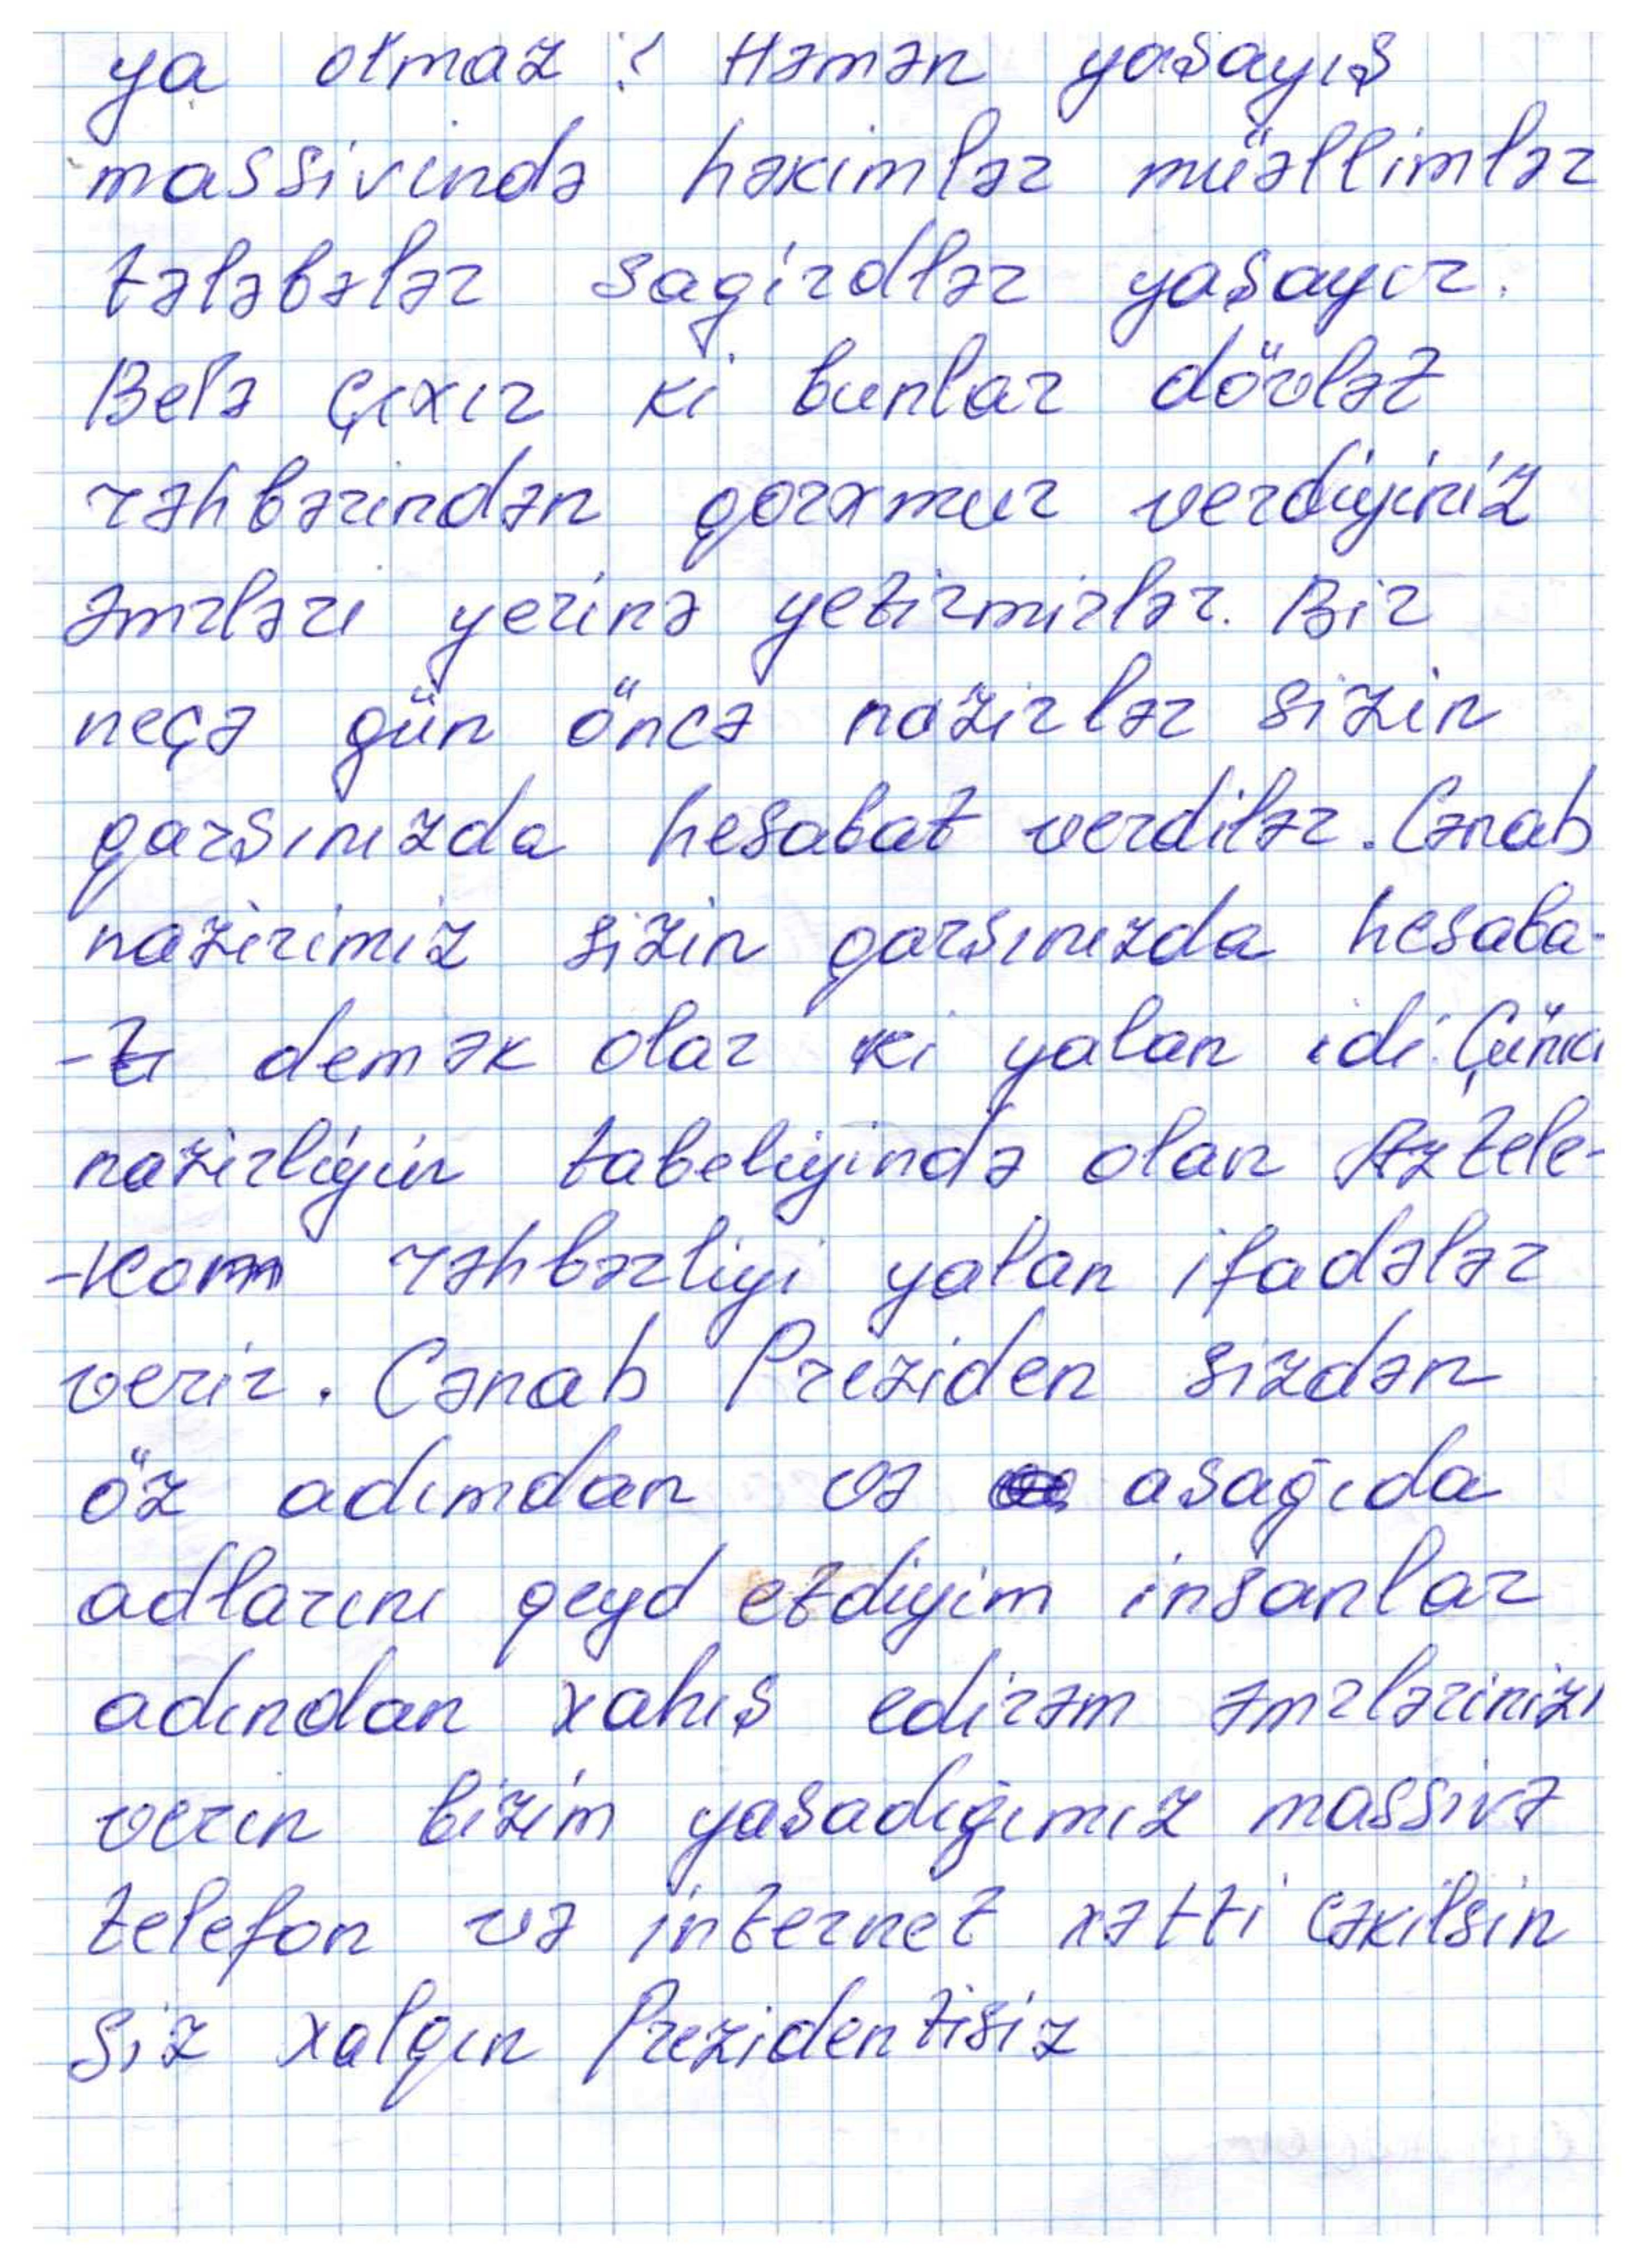 ya olmaz? Həmən yaşayış
massivində həkimlər müəllimlər
tələbələr sagirdlər yaşayır.
Belə çıxır ki bunlar dövlət
rəhbərindən qorxmur verdiyiniz
əmrləri yerinə yetirmirlər. Bir
neçə gün öncə nazirlər sizin
qarsınızda hesabat verdilər. Cənab
nazirimiz sizin qarsınızda hesaba-
-tı demək olar ki yalan idi. Çünki
nazirliyin tabeliyində olan Aztele-
-kom rəhbərliyi yalan ifadələr
verir. Cənab Preziden sizdən
öz adımdan və asağıda
adlarını qeyd etdiyim insanlar
adından xahış edirəm əmrlərinizi
verin bizim yasadığımız massivə
telefon və internet xətti cəkilsin
Siz xalqın Prezidentisiz